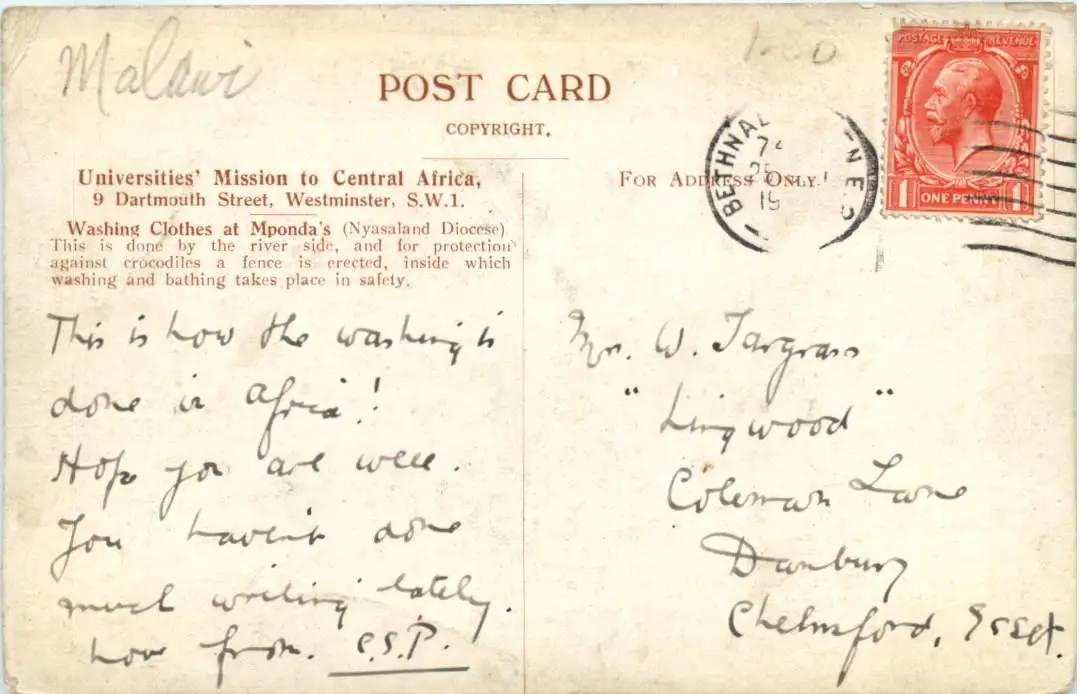 Malawi
1-00
POST CARD
COPYRIGHT.
Universities' Mission to Central Africa,
9 Dartmouth Street, Westminster, S.W.1.
Washing Clothes at Mponda's (Nyasaland Diocese)
This is done by the river side, and for protection
against crocodiles a fence is erected, inside which
washing and bathing takes place in safety.
This is how the washing is
done in Africa!
Hope you are well.
You haven't done
much writing lately.
how from. C.S.P.
FOR ADDRESS ONLY.
BETHNAL
25
19
POSTAGE REVENUE
1 ONE PENNY 1
Mrs. W. Targrass
"Lingwood"
Coleman Lane
Danbury
Chelmsford, Essex.